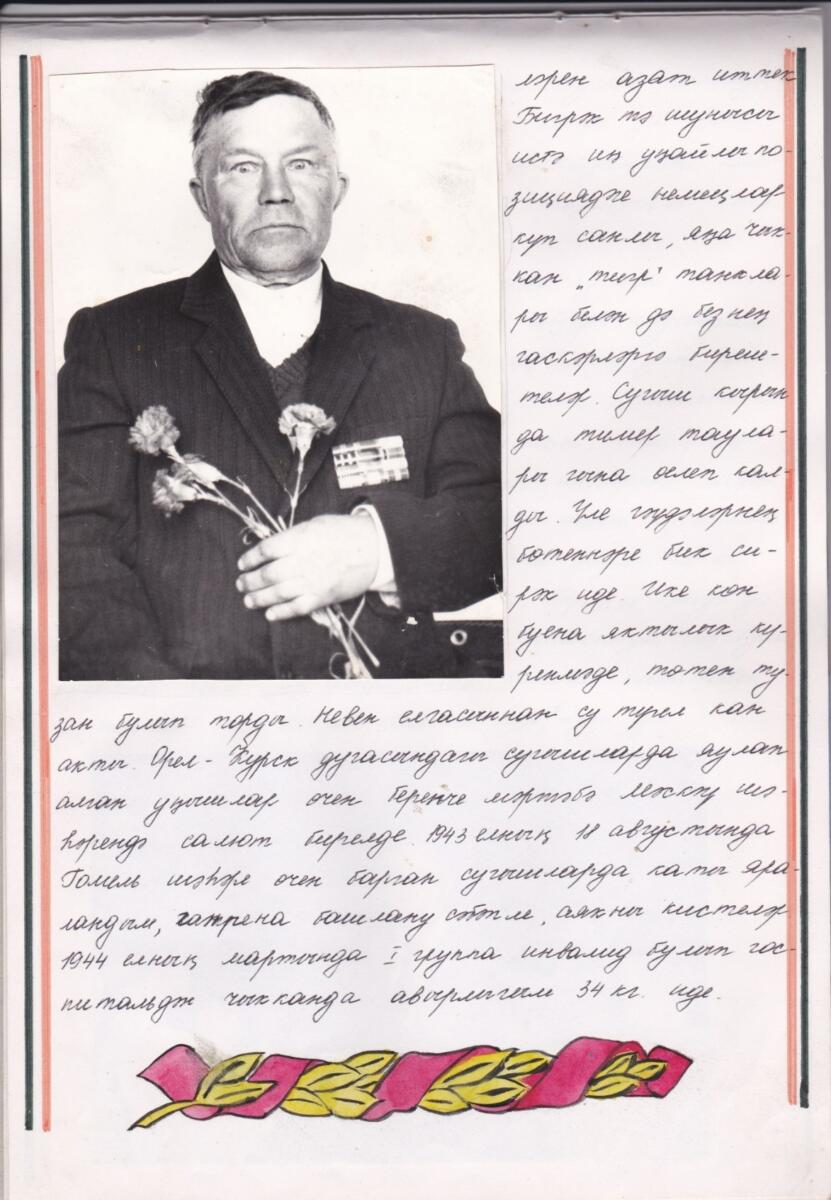 ләрен азат иттек
Бигрәк тә шунысы
истә иң уңайлы по-
зициядән немецлар
куп санлы, яңа чык-
кан „тигр" танкла-
ры белән дә безнең
гаскәрләргә биреш-
теләр. Сугыш кырын
да тимер таула-
ры гына өелеп кал-
ды. Үле гәүдәләрнең
бөтеннәре бик си-
рәк иде. Ике көн
буена яктылык кү-
ренмәде, төтен ту-
зан булып торды. Невен елгасыннан су түгел кан
акты. Орел-Курск дугасындагы сугышларда яулап
алган уңышлар өчен беренче мәртәбә Мәскәү шә-
һәрендә салют бирелде. 1943 елның 18 августында
Гомель шәһәре өчен барган сугышларда каты яра-
ландым, гангрена башлану сәбәпле, аякны кистеләр
1944 елның мартында I группа инвалид булып гос-
питальдән чыкканда авырлыгым 34 кг. иде.